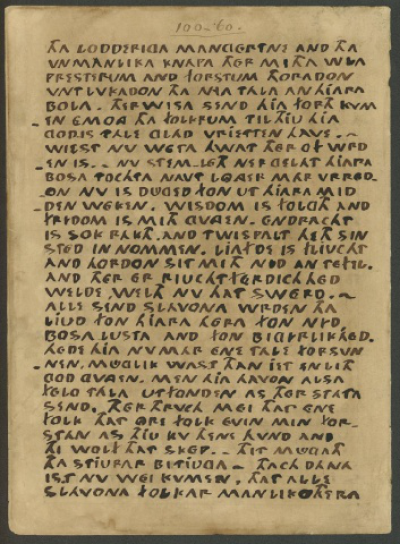 100-60.
THA LODDERIGA MANGERTNE AND THA
VNMANLIKA KNAPA THER MITHA WLA
PRESTERUM AND FORSTUM HORADON
VNTLVKADON THA NYA TALA AN HIARA
BOLA. THERWISA SEND HIA FORTH KVM
-EN EMONG THA FOLKRUM TIL THIU HIA
GODIS TALE GLAD VRIETTEN HAVE. ~
WILST NV WETA HWAT THER OF WRD
-EN IS. ~ NV STEM-LETH NER GELAT HIARA
BOSA TOCHTA NAVT LONGER MAR VRRED-
-ON NV IS DUGED FON UT HIARA MID
-DEN WEKEN. WISDOM IS FOLGTH AND
FRYDOM IS MITH GVNGEN. ENDRACHT
IS SOK RAKTH. AND TWISPALT HETH SIN
STED IN NOMMEN. LIAFDE IS FLIUCHT
AND HORDOM SIT MITH NYD AN TEFEL.
AND THER ER RIUCHTFERDICHHED
WELDE, WELTH NV THAT SWERD. ~
ALLE SEND SLAVONA WRDEN THA
LIUD FON HIARA HERA FON NYD
BOSA LUSTA AND FON BIGYRLIKHED.
HEDE HIA NV MAR ENE TALE FORSVN
-NEN. MUGLIK WAST THAN IET EN LITH
GOD GVNGEN. MEN HIA HAVON ALSA
FELO TALA UTFONDEN AS THER STATA
SEND. THER THRVCH MEI THAT ENE
FOLK THAT ORE FOLK EVIN MIN FOR-
STAN AS THIU KV THENE HVND AND
THI WOLF THAT SKEP. ~ THIT MUGATH
THA STIURAR BITIUGA ~ THACH DANA
IST NV WEI KVMEN, THAT ALLE
SLAVONA FOLKAR MANLIKOTHERA